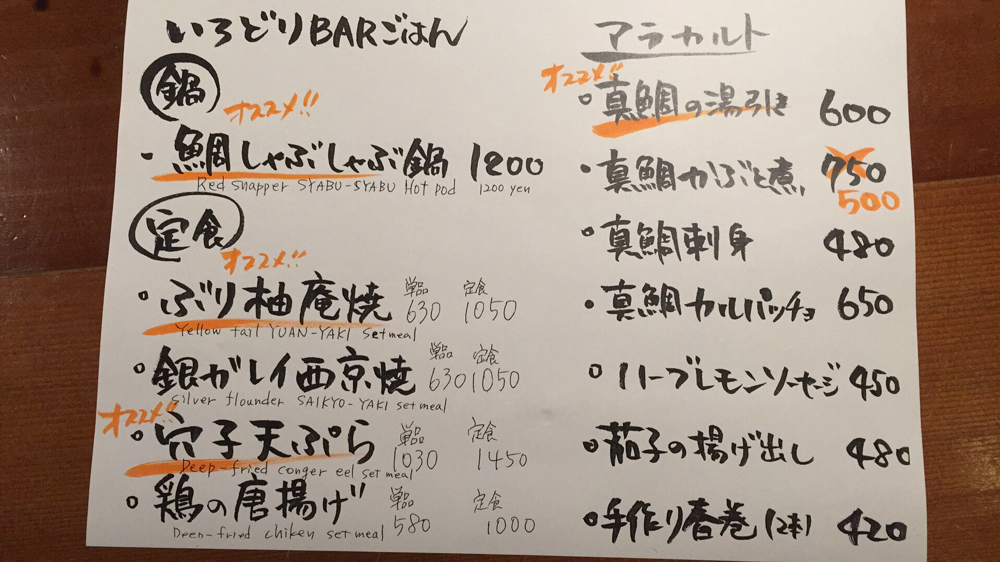 いろどりBARごはん
鍋
オススメ!!
・鯛しゃぶしゃぶ鍋 1200
Red snapper SYABU-SYABU Hot pod 1200 yen
定食
オススメ!!
○ぶり柚庵焼 単品 630 定食 1050
Yellow tail YUAN-YAKI setmeal
○銀ガレイ西京焼 単品 630 定食 1050
Silver flounder SAIKYO-YAKI setmeal
オススメ!!
○穴子天ぷら 単品 1030 定食 1450
Deep-fried conger eel set meal
○鶏の唐揚げ 単品 580 定食 1000
Deen-fried chiken set meal
アラカルト
オススメ!!
・真鯛の湯引き 600
・真鯛かぶと煮 750
500
・真鯛刺身 480
・真鯛カルパッチョ 650
○ハーブレモンソーセージ 450
○茄子の揚げ出し 480
○手作り春巻(2本) 420